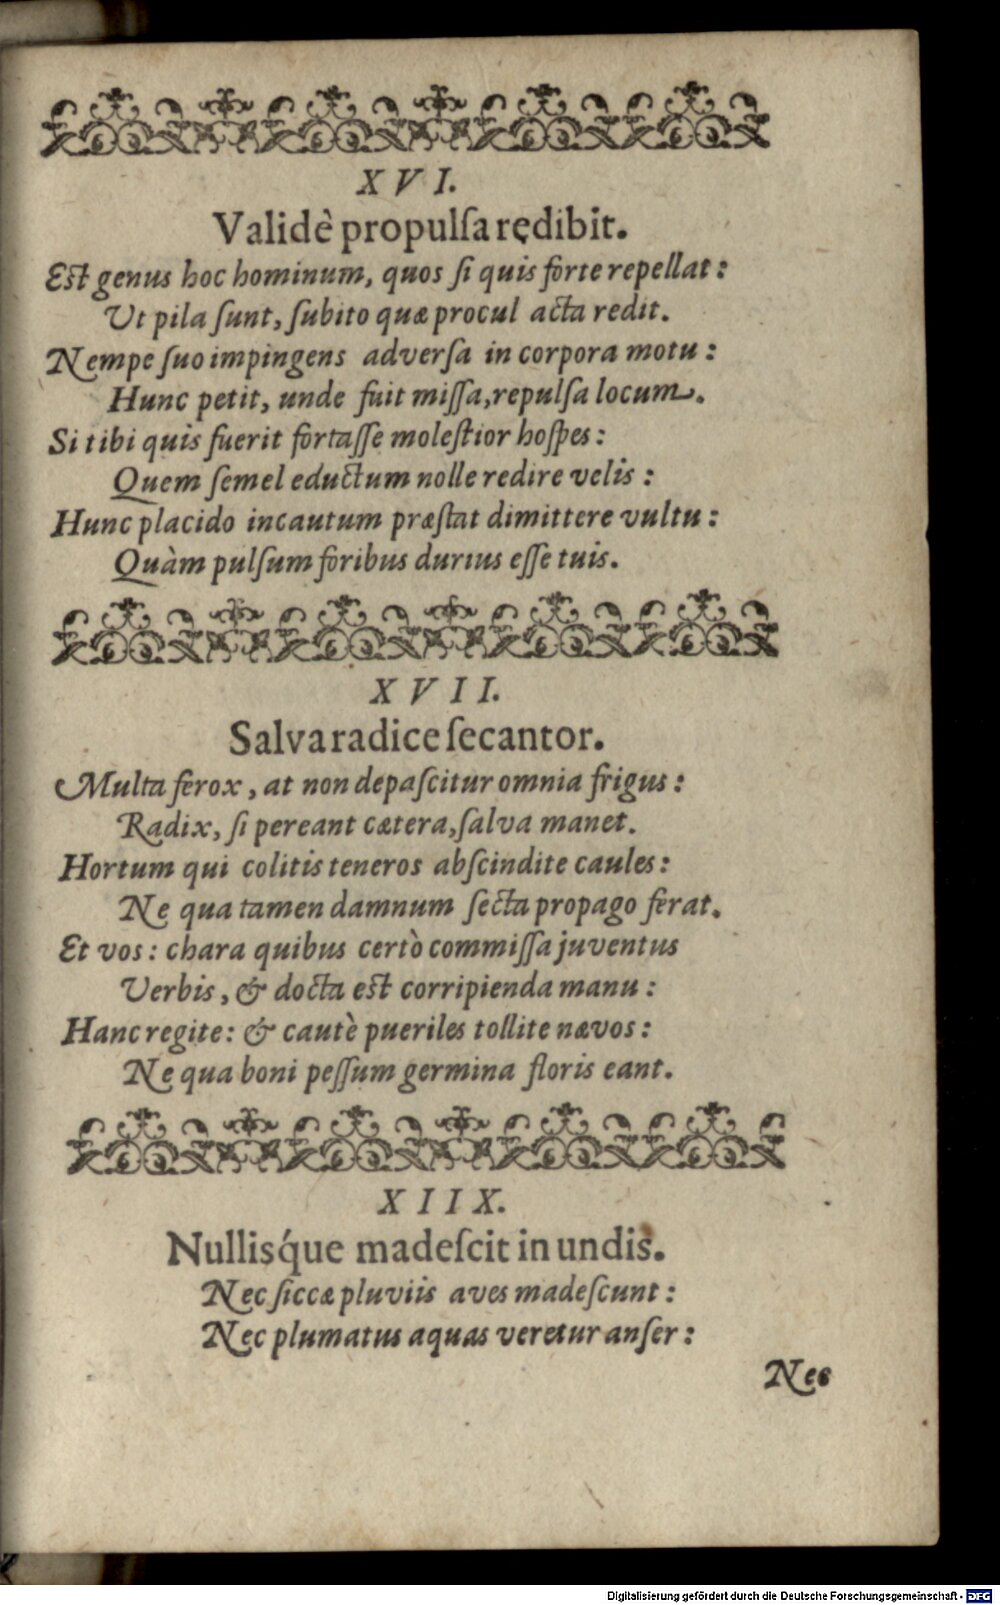 X V I.
Validè propulſa redibit.
Eſt genus hoc hominum, quos ſi quis forte repellat:
Ut pila ſunt, ſubito quæ procul acta redit.
Nempe ſuo impingens adverſa in corpora motu:
Hunc petit, unde fuit miſſa, repulſa locum.
Si tibi quis fuerit fortaſſe moleſtior hoſpes:
Quem ſemel eductum nolle redire velis:
Hunc placido incautum præſtat dimittere vultu:
Quàm pulſum foribus durius eſſe tuis.
X V I I.
Salva radice ſecantor.
Multa ferox, at non depaſcitur omnia frigus:
Radix, ſi pereant cætera, ſalva manet.
Hortum qui colitis teneros abſcindite caules:
Ne qua tamen damnum ſecta propago ferat.
Et vos: chara quibus certò commiſſa juventus
Verbis, & docta eſt corripienda manu:
Hanc regite: & cautè pueriles tollite nævos:
Ne qua boni peſſum germina floris eant.
X I I X.
Nullisq́ue madeſcit in undis.
Nec ſiccæ pluviis aves madeſcunt:
Nec plumatus aquas veretur anſer:
Nec
Digitalisierung gefördert durch die Deutsche Forschungsgemeinschaft - DFG